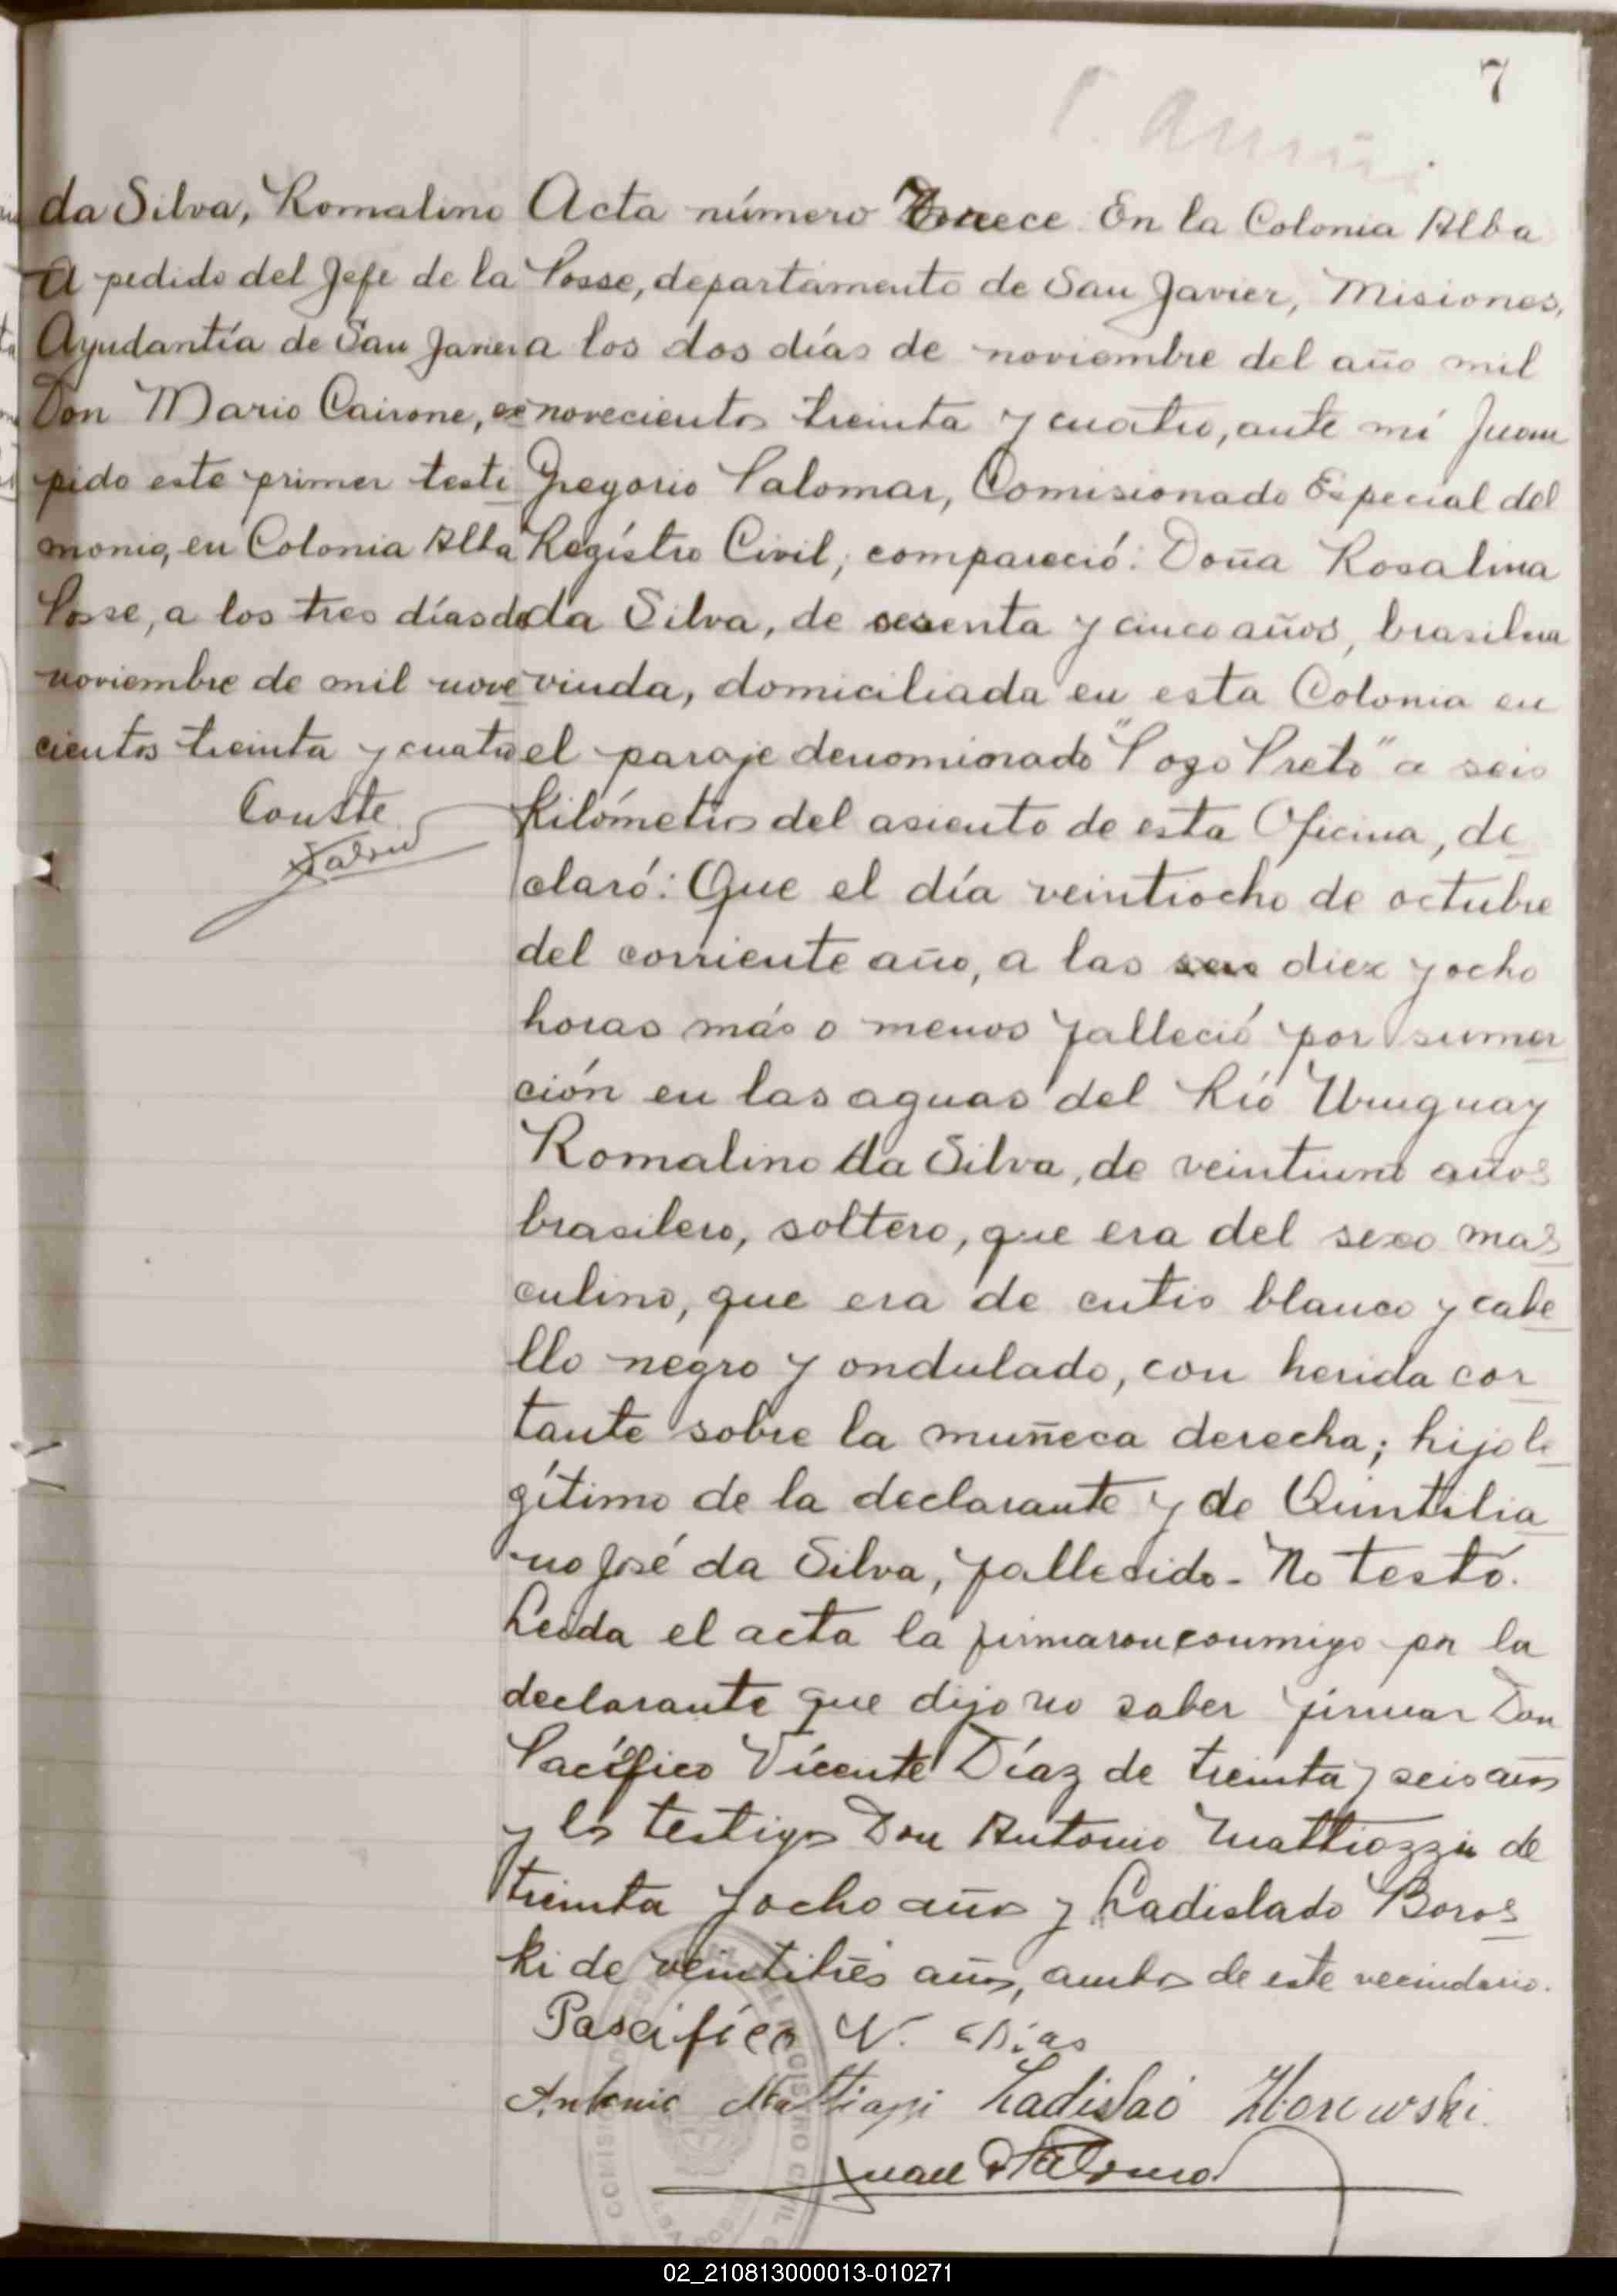 7
da Silva, Romalino
A pedido del Jefe de la
Ayudantía de San Javier
Don Mario Cairone, ex
pido este primer testi
monio, en Colonia Alba
Posse, a los tres días de
noviembre de mil nove
cientos treinta y cuatro
Conste
Acta número Trece. En la Colonia Alba
Posse, departamento de San Javier, Misiones,
a los dos días de noviembre del año mil
novecientos treinta y cuatro, ante mí Juan
Gregorio Palomar, Comisionado Especial del
Regístro Civil, compareció: Doña Rosalina
da Silva, de sesenta y cinco años, brasilera
viuda, domiciliada en esta Colonia en
el paraje denominado "Pogo Preto" a seis
kilómetros del asiento de esta Oficina, de
claró: Que el día veintiocho de octubre
del corriente año, a las diez y ocho
horas más o menos falleció por sumer
ción en las aguas del Río Uruguay
Romalino da Silva, de veintiuno años
brasilero, soltero, que era del sexo mas
culino, que era de cutis blanco y cabe
llo negro y ondulado, con herida cor
tante sobre la muñeca derecha; hijo le
gítimo de la declarante y de Quintilia
no José da Silva, fallecido. No testó.
Leida el acta la firmaron conmigo por la
declarante que dijo no saber firmar Don
Pacífico Vicente Díaz de treinta y seis años
y los testigos Don Antonio Mattiozzi de
treinta y ocho años y Ladislado Boros
ki de veintitrés años, ambos de este vecindario.
Pascifico V. Dias
Antonio Ladislao
Juan
COMISIO REGISTRO CIVIL
02_210813000013-010271